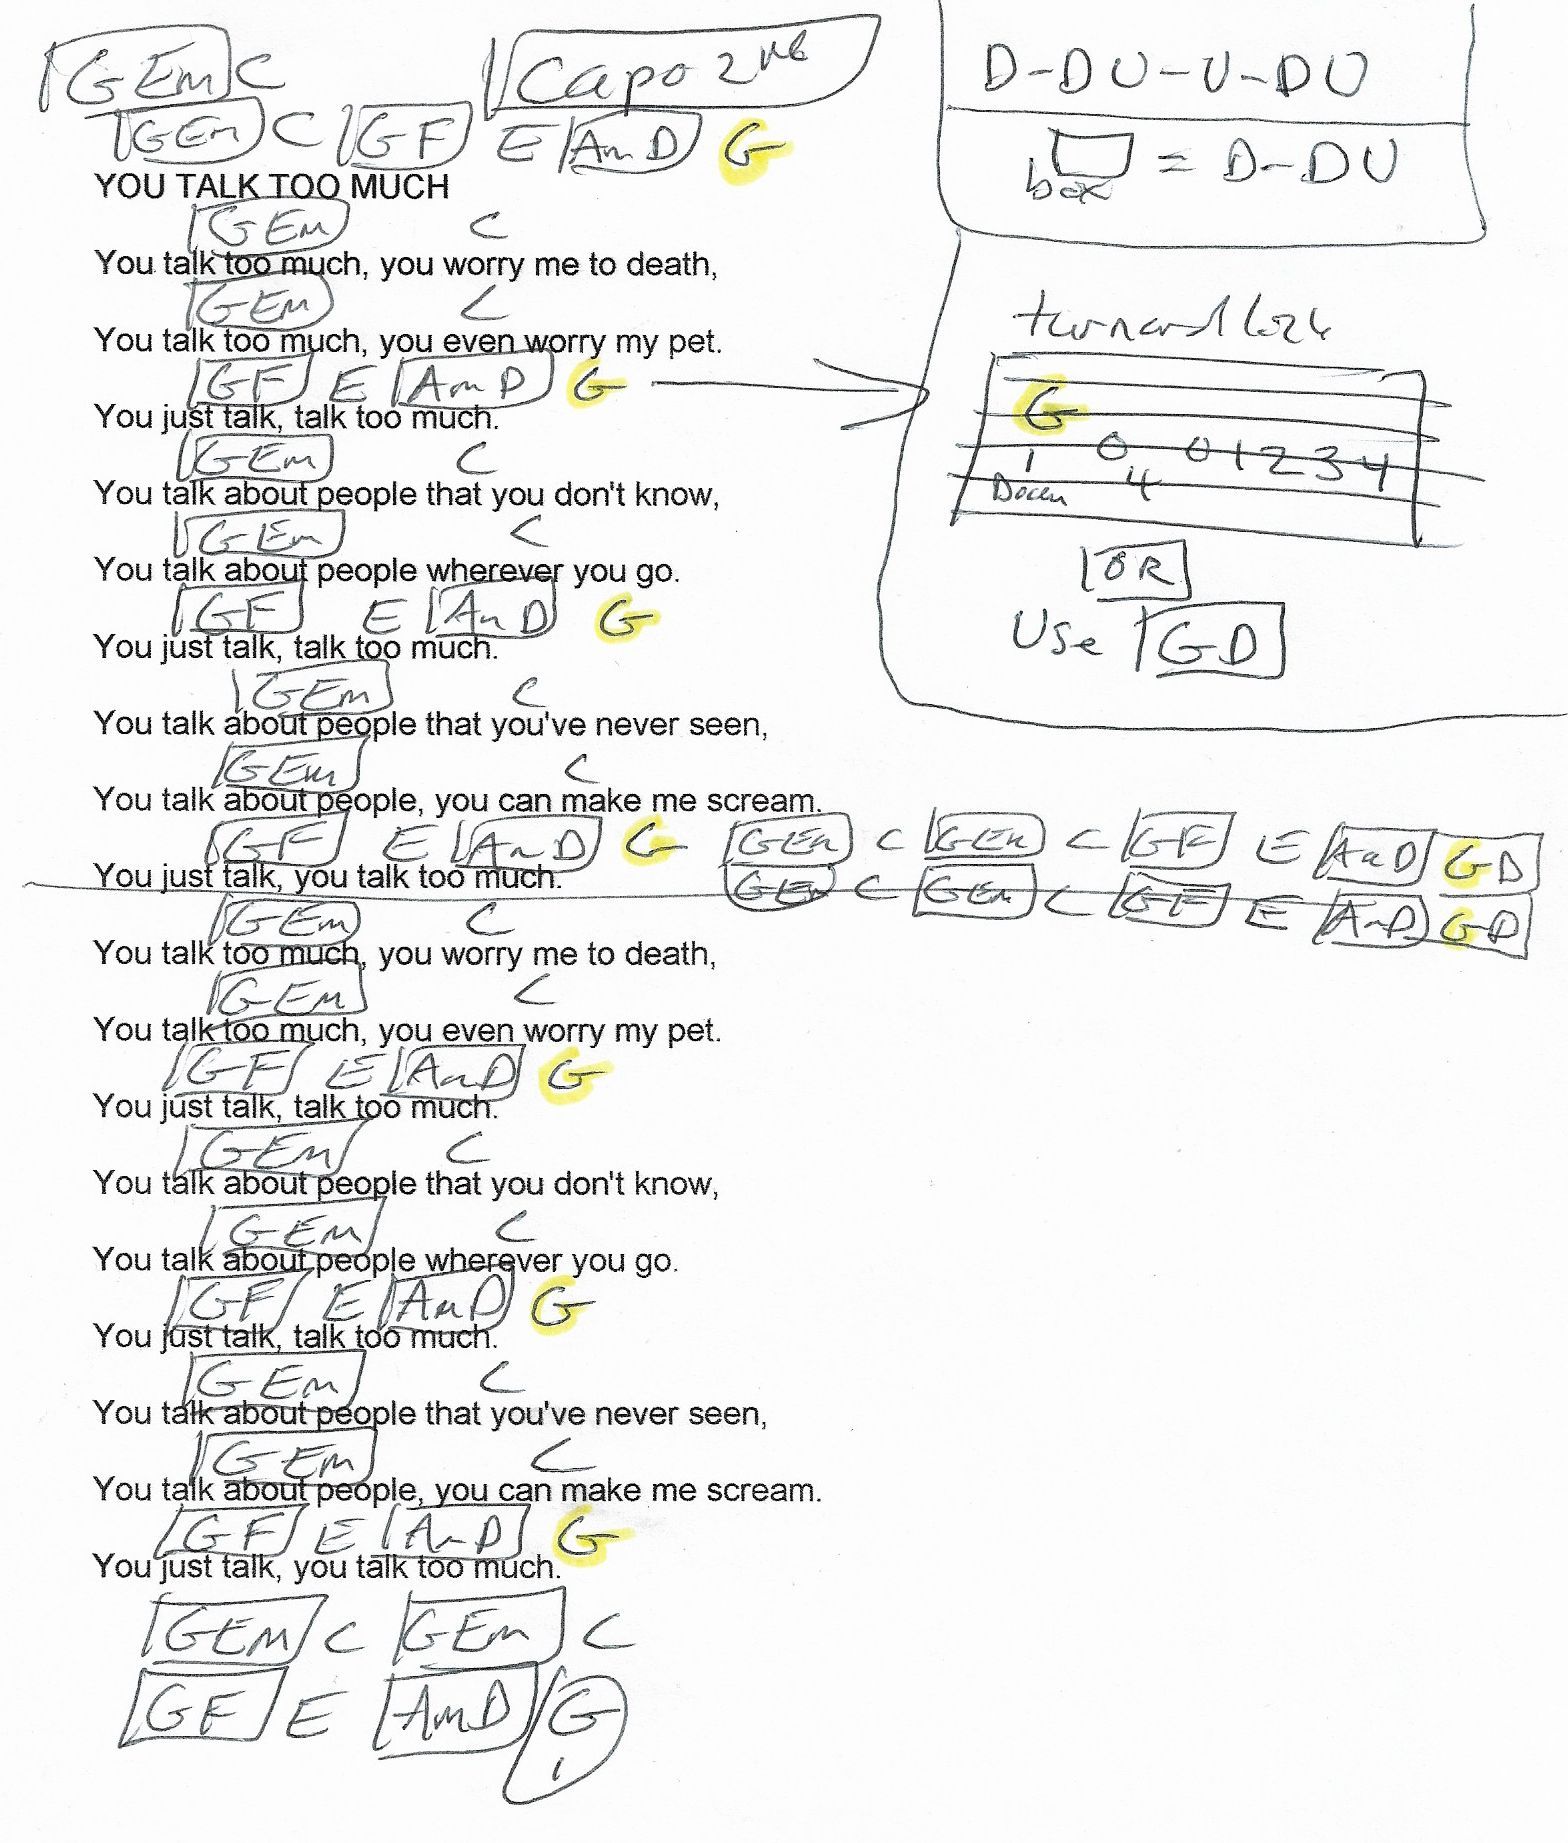 G Em C
Capo 2nd
G Em C G F E Am D G
YOU TALK TOO MUCH
G Em C
You talk too much, you worry me to death,
G Em C
You talk too much, you even worry my pet.
G F E Am D G
You just talk, talk too much.
G Em C
You talk about people that you don't know,
G Em C
You talk about people wherever you go.
G F E Am D G
You just talk, talk too much.
G Em C
You talk about people that you've never seen,
G Em C
You talk about people, you can make me scream.
G F E Am D G
You just talk, you talk too much.
G Em C G Em C G F E Am D G D
G Em C G Em C G F E Am D G D
G Em C
You talk too much, you worry me to death,
G Em C
You talk too much, you even worry my pet.
G F E Am D G
You just talk, talk too much.
G Em C
You talk about people that you don't know,
G Em C
You talk about people wherever you go.
G F E Am D G
You just talk, talk too much.
G Em C
You talk about people that you've never seen,
G Em C
You talk about people, you can make me scream.
G F E Am D G
You just talk, you talk too much.
G Em C G Em C
G F E Am D G
1
D-DU-U-DU
box = D-DU
turnaround
G
0 0 1 2 3 4
1 4
Down
OR
Use G D